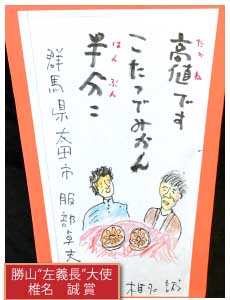 高値です
たかね
こたつでみかん
半分こ
はんぶん
群馬県太田市 服部卓夫
椎名 誠
勝山“左義長”大使
椎名 誠 賞